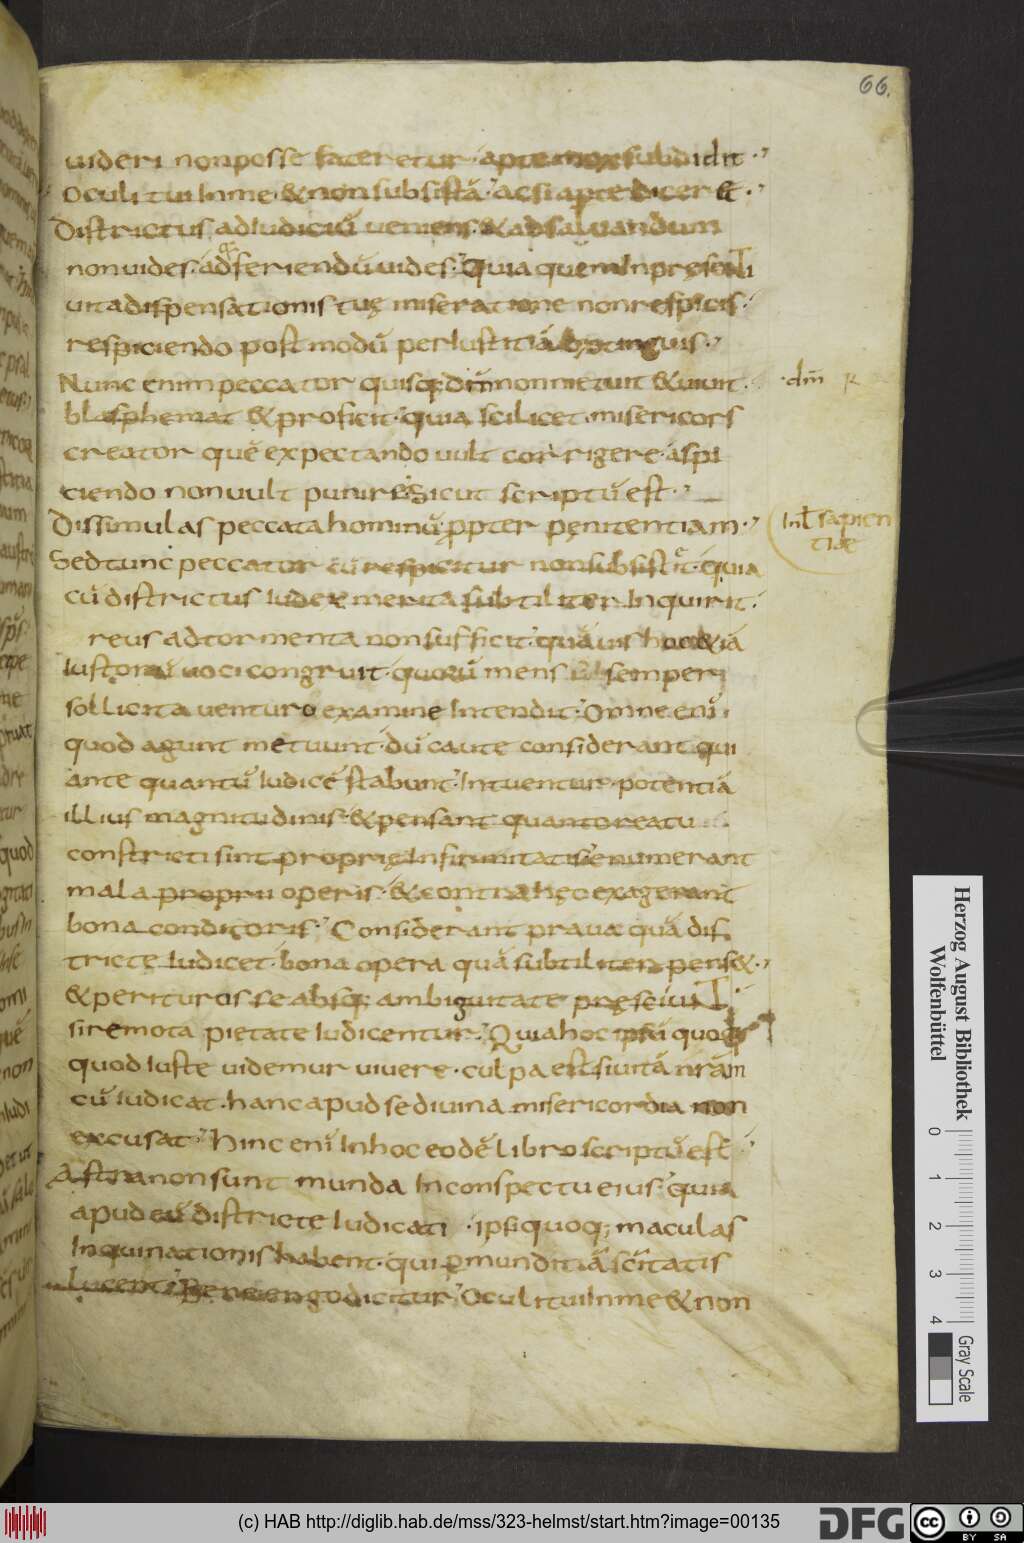 66.
uideri non posse faceretur · apte mox subdidit ·
Oculi tui In me · & non subsistā · ac si apte dicer& ·
Districtus ad Iudiciū ueniens · & ad saluandum
non uides · & ad feriendū uides · Quia quem In pręsenti
uita dispensationis tuę miseratione non respicis ·
respiciendo post modū per Iustitiā extinguis ·
Nunc enim peccator quisq; dm̄ non metuit & uiuit · · dm̄ R
blasphemat & proficit · quia scilicet misericors
creator quē expectando uult corrigere · aspi
ciendo non uult punire · Sicut scriptū est ·
Dissimulas peccata hominū ppter pęnitentiam · In L sapien
tiae
Sed tunc peccator cū respicitur non subsistit · quia
cū districtus Iudex merita subtiliter Inquirit ·
reus ad tormenta non sufficit · quāuis hoc &iā
Iustorū uoci congruit · quorū mens semper
sollicita uenturo examine Intendit · Omne enī
quod agunt metuunt · dū caute considerant qui
ante quantū Iudicē stabunt · Intuentur · potentiā
illius magnitudinis · & pensant quanto reatu
constricti sint proprię Infirmitatis · enumerant
mala proprii operis · & contra hęc exagerant
bona conditoris · Considerant praua quā dis
tricte Iudicet · bona opera quā subtiliter pens& ·
& perituros se absq; ambiguitate pręsciunt ·
si remota pietate Iudicentur · Quia hoc ipsū quoq;
quod Iuste uidemur uiuere · culpa est si uitā nr̄am
cū Iudicat · hanc apud se diuina misericordia non
excusat · Hinc enī In hoc eodē libro scriptū est ·
Astra non sunt munda In conspectu eius · quia
apud eū districte Iudicati · ipsi quoq; maculas
Inquinationis habent · qui p munditiā sc̄itatis
lucent · Bene ergo dicitur · Oculi tui In me & non
Herzog August Bibliothek
Wolfenbüttel
0 1 2 3 4
Gray Scale
(c) HAB http://diglib.hab.de/mss/323-helmst/start.htm?image=00135
DFG
cc BY SA